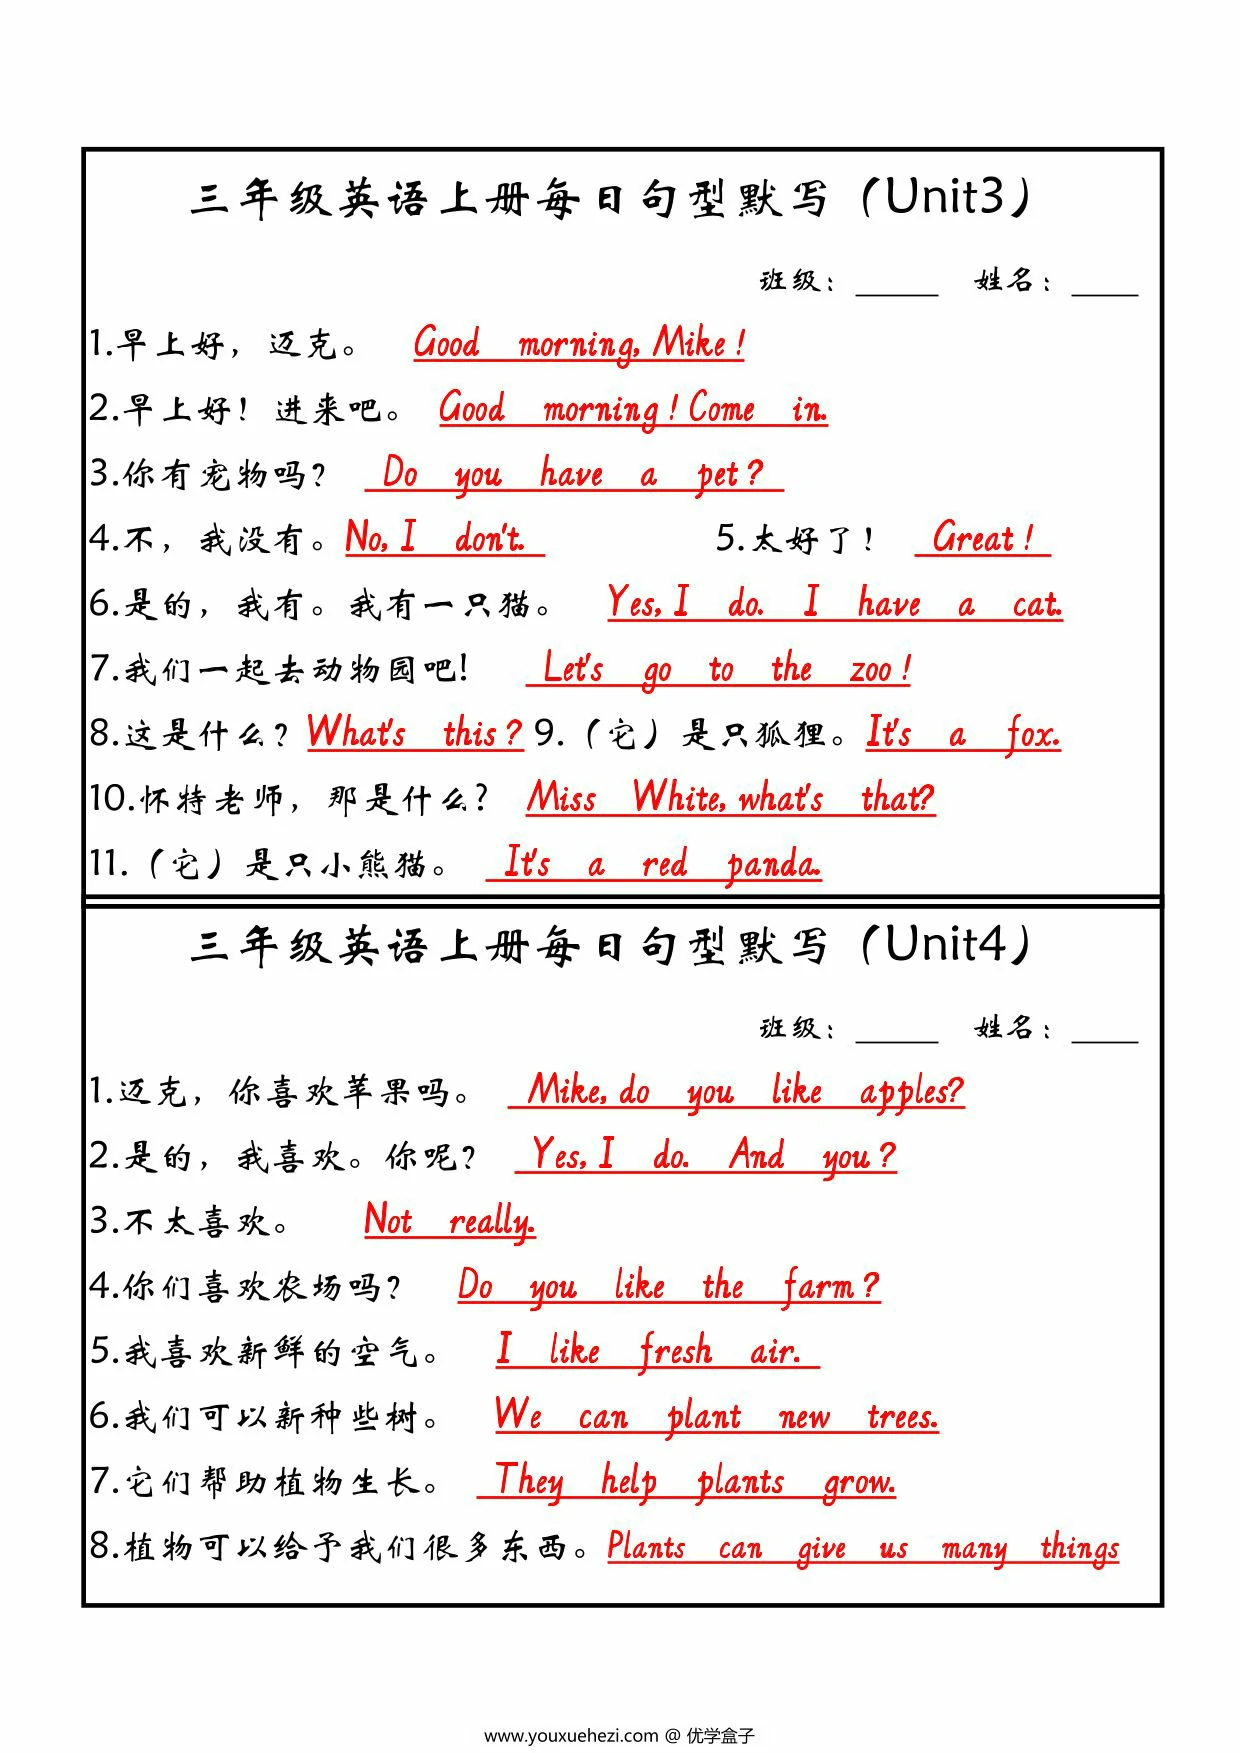 三年级英语上册每日句型默写（Unit3）
班级：_____ 姓名：____
1.早上好，迈克。 Good morning, Mike!
2.早上好！进来吧。 Good morning! Come in.
3.你有宠物吗？ Do you have a pet?
4.不，我没有。No, I don't. 5.太好了！ Great!
6.是的，我有。我有一只猫。 Yes, I do. I have a cat.
7.我们一起去动物园吧! Let's go to the zoo!
8.这是什么？What's this? 9.（它）是只狐狸。It's a fox.
10.怀特老师，那是什么？ Miss White, what's that?
11.（它）是只小熊猫。 It's a red panda.
三年级英语上册每日句型默写（Unit4）
班级：_____ 姓名：____
1.迈克，你喜欢苹果吗。 Mike, do you like apples?
2.是的，我喜欢。你呢？ Yes, I do. And you?
3.不太喜欢。 Not really.
4.你们喜欢农场吗？ Do you like the farm?
5.我喜欢新鲜的空气。 I like fresh air.
6.我们可以新种些树。 We can plant new trees.
7.它们帮助植物生长。 They help plants grow.
8.植物可以给予我们很多东西。Plants can give us many things
www.youxuehezi.com @ 优学盒子